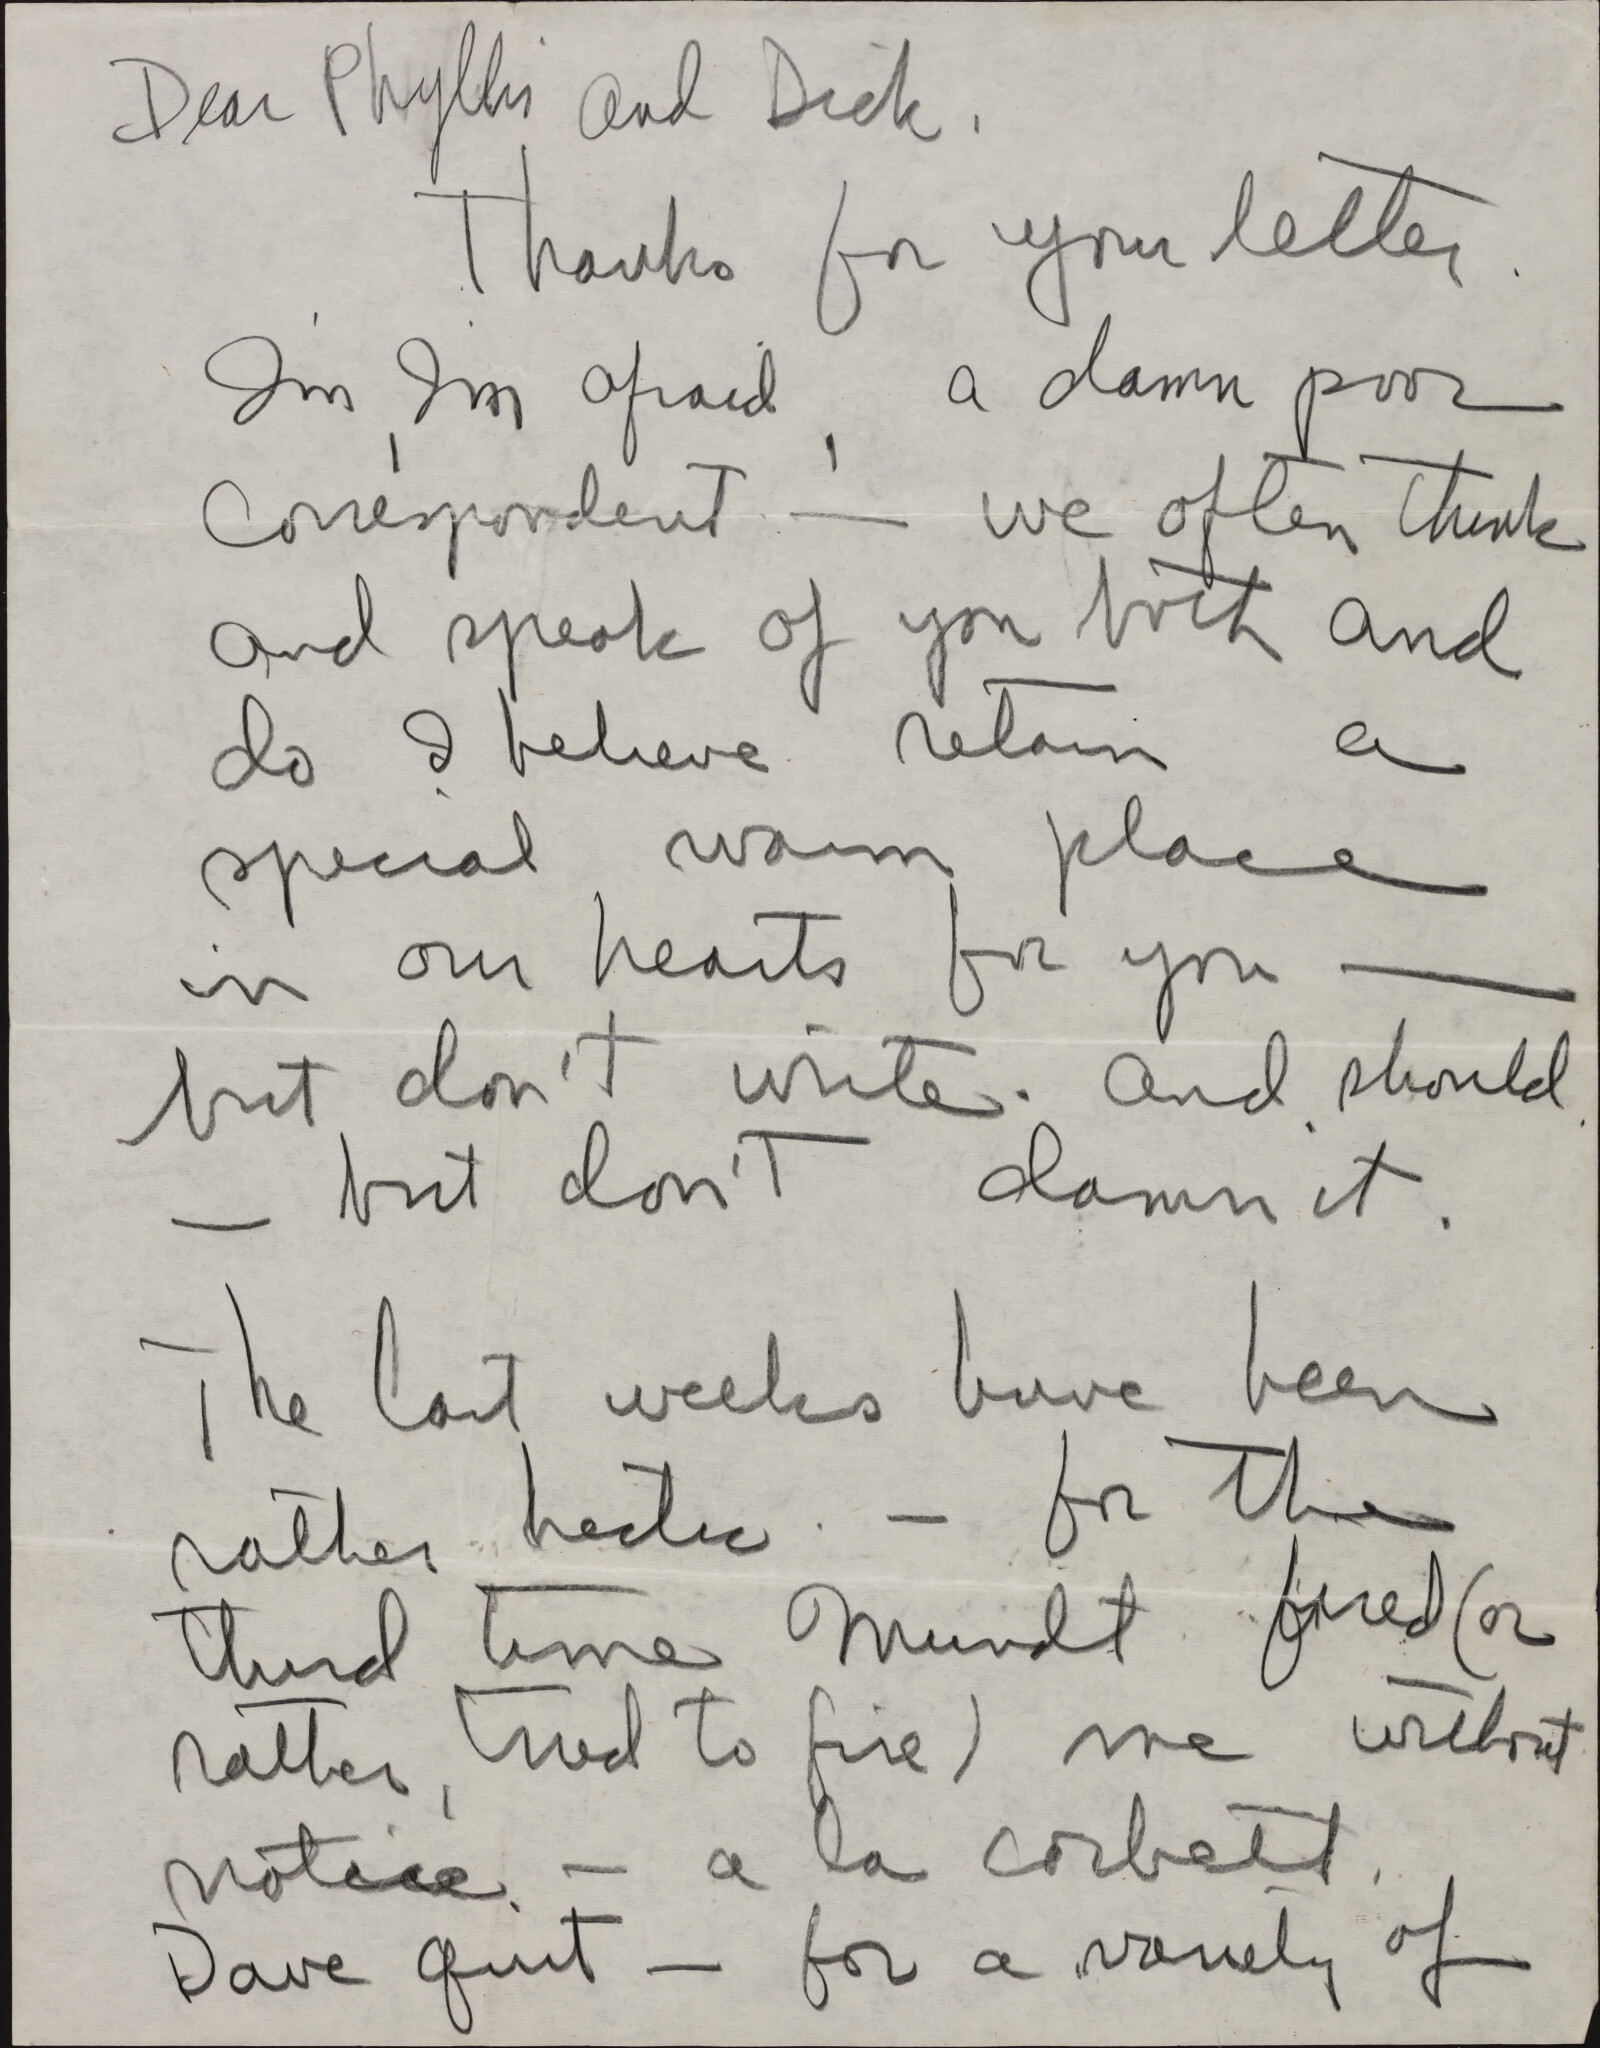 Dear Phyllis and Dick.
Thanks for your letter.
I'm, I'm afraid, a damn poor
correspondent — we often think
and speak of you both and
do I believe retain a
special warm place
in our hearts for you —
but don't write. And should
— but don't damn it.
The last weeks have been
rather hectic. — for the
third time Mundt fired (or
rather, tried to fire) me without
notice. — a la Corbett.
Dave quit — for a variety of